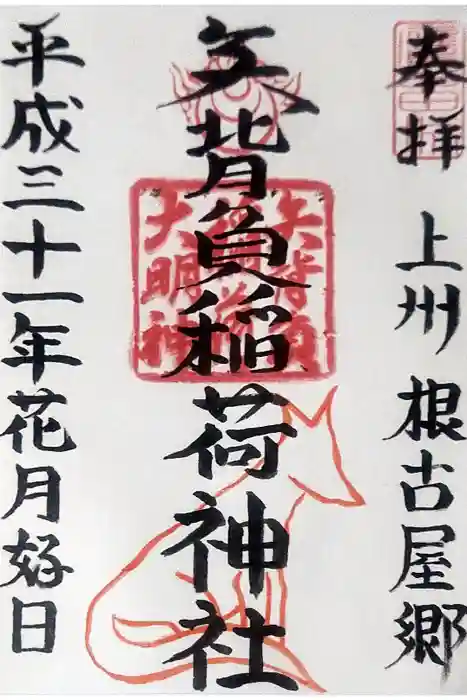 奉拝 上州 根古屋郷
矢背負稲荷神社
矢背負
稲荷
大明神
平成三十一年花月好日